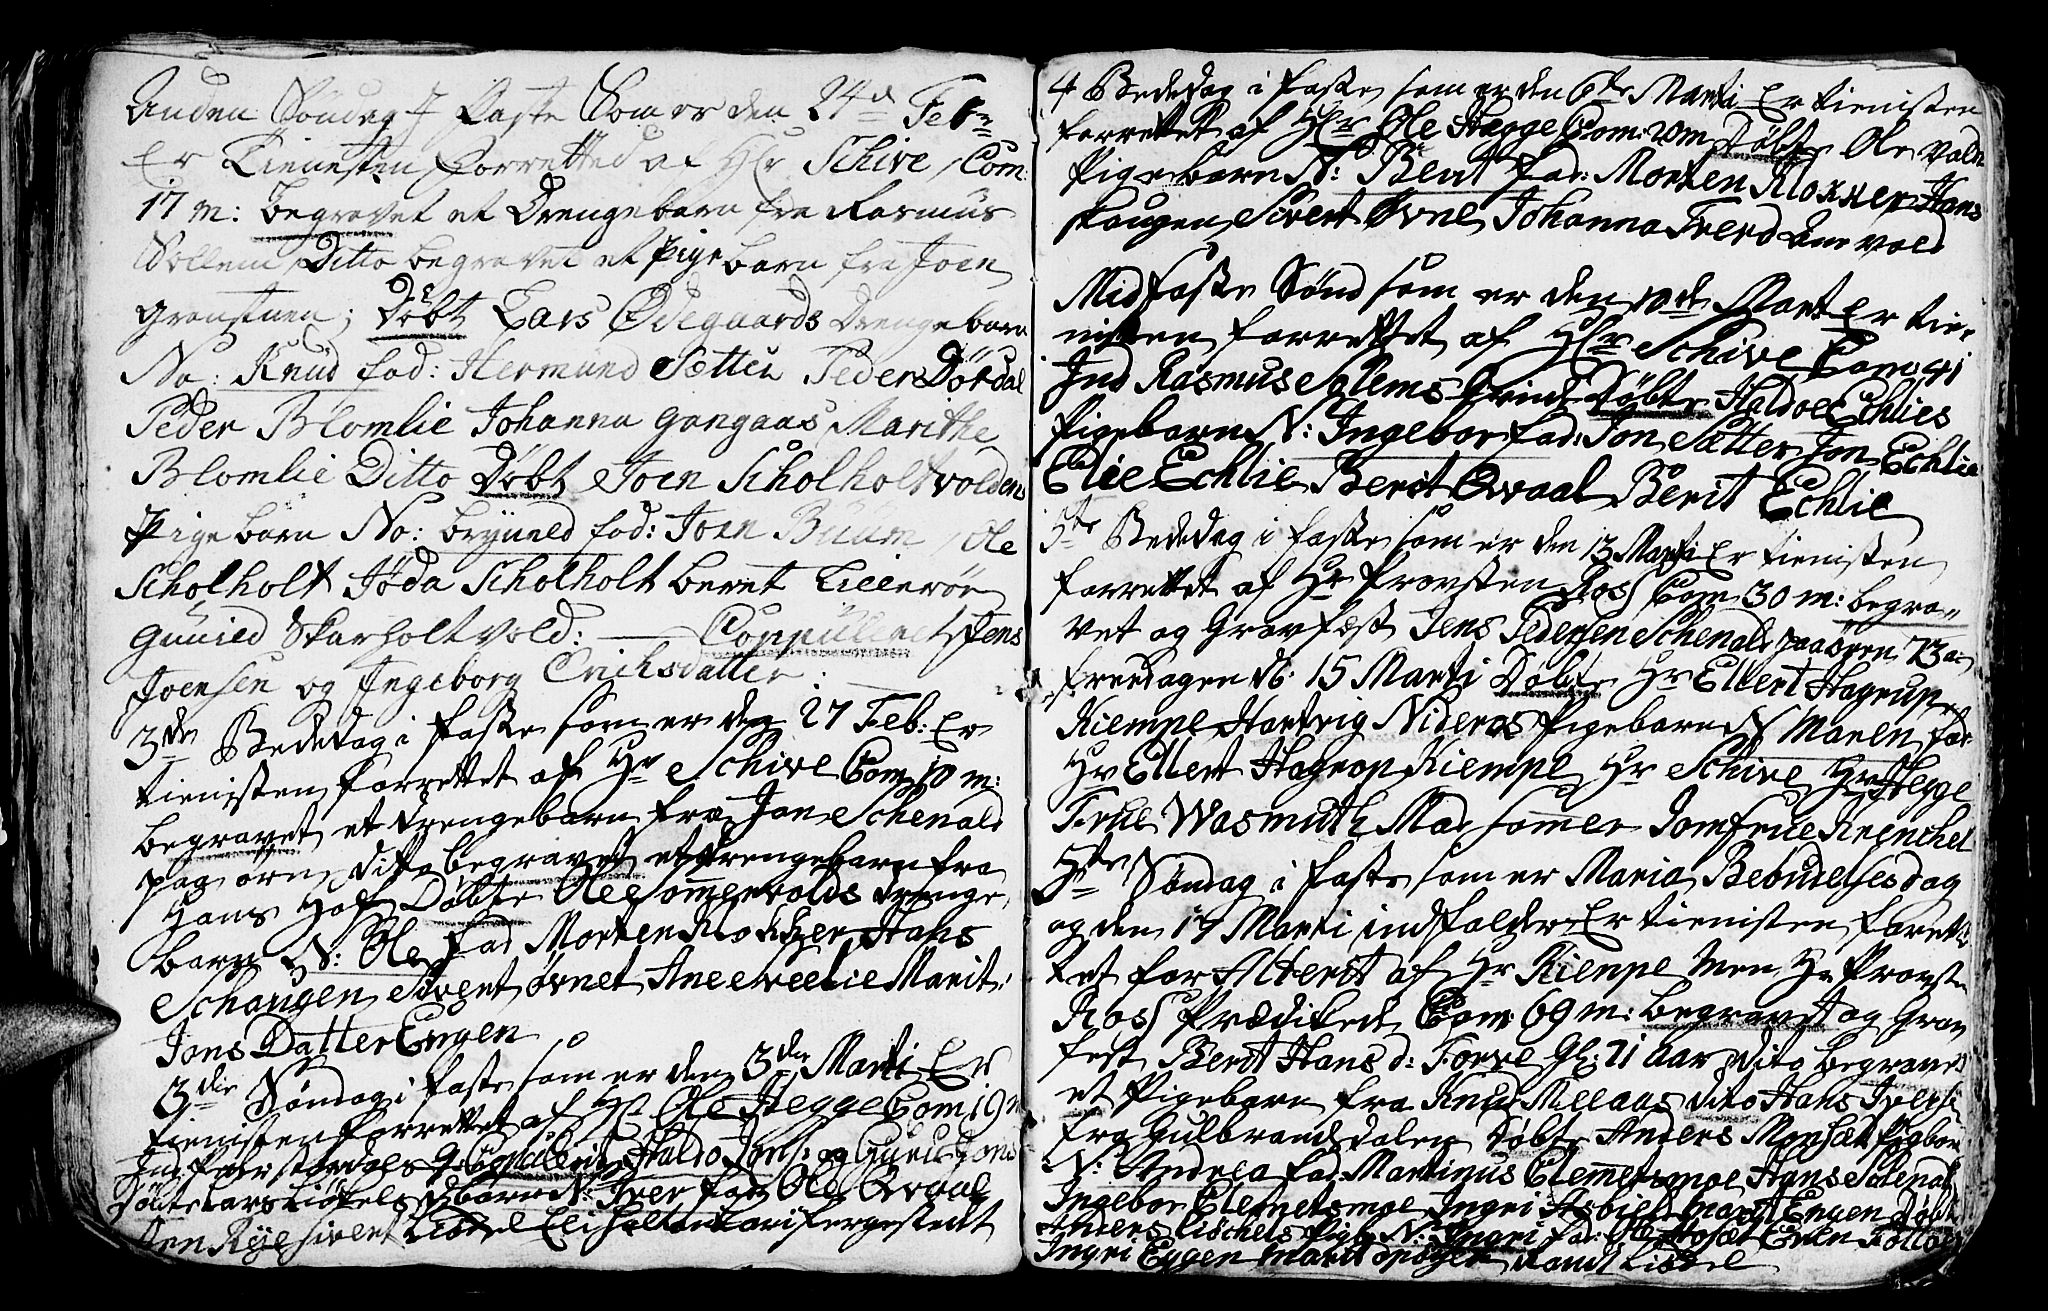 Anden Søndag I Faste Som er den 24de Febr
Er Tienesten Forretted af Hr Schive Com:
17 m: begravet et Drengebarn fra Rasmus
Sollem Ditto begravet et pigebarn fra Joen
Døbt Lars Ødegaards Drengebarn
No: Knud fad: Hermund Sætter Peder Dørdal
Peder Blomlie Johanna gangaas Marithe
Blomlie Ditto Døbt Joen Scholholtvoldens
Pigebarn No: bryned fad: Joen Buum Ole
Scholholt Jøda Scholholt beret Lieenrøn
guunild Skarholtvold: Coppulleret Jens
Joensen og Ingeborg Erichsdatter
3de Bededag i faste som er den 27 Feb: Er
tienisten forrettet af Hr Schive Com 10 m:
begravet et drengebarn fra Jon Schenald
dito begravet et drengebarn fra
Hans Hof Døbte Ole Sommervolds drenge
barn N: Ole fad Morten Klokker Hans
Schaugen Sivert øvnet Marit
Jons Datter Engen
3die Søndag i faste som er den 3de Marti Er
tienisten forrettet af Hr Ole Hegge Com 19 m
Haldo Jons: og Guru Jons
N: Iver fad Ole Qvaal
Sivert
4 Bededag i faste som er den 6te Marti Er tienisten
forrettet af Hr Ole Hegge Com: 20 m Døbte Ole vold
Pigebarn N: Berit fad: Morten Klokker Hans
skaugen Sivert Øvne Johanna Trerd Ane vold
Midfaste Sønd som er den 10de Mart Er tie-
nisten forrettet af Hr Schive Com: 41
Ind Rasmus Solems Qvinde Døbte Haldoe Echlies
Pigebarn N: Ingebor fad: Jon Sætter Jon Echlie
Elie Echlie Berit Qvaal Berit Echlie
5te Bededag i faste som er den 13 Marti Er tienisten
forrettet af Hr Provsten Ross Com 30 m: begra-
vet og Gravfæst Jens Pedersen Schenald 73 a:
freedagen d: 15 Marti Døbte Hr Ellert Hagrup
Kiempe Hartvig Nideros Pigebarn N Maren fad
Hr Ellert Hagrop Kiempe Hr Schive Hr Hegge
Frue Wasmuth Mad Sommer Jomfrue Krenchel
5te Søndag i faste som er Maria Bebudelses dag
og den 17 Marti indfalder Er tienisten foret-
tet for Alterit af Hr Kiempe Men Hr Provst
Ross Prædikede Com: 69 m: begravet og Grav
fest Berit Hans d: Forve Gl: 71 aar dito begravet
et Pigebarn fra Knud Meeaas dito Hans Iversen
fra Gulbrandsdalen Døbte Anders Monsæt Pigbarn
N: Andrea fad: Martinus Clemetsmoe Hans Schenal
Ingebor Clemetsmoe Ingri Marit Engen Døbt
Anders Liøchels Pigb N: Ingri fad: Ole Mosæt Even
Ingri Eggen Marit Randi Liøchel